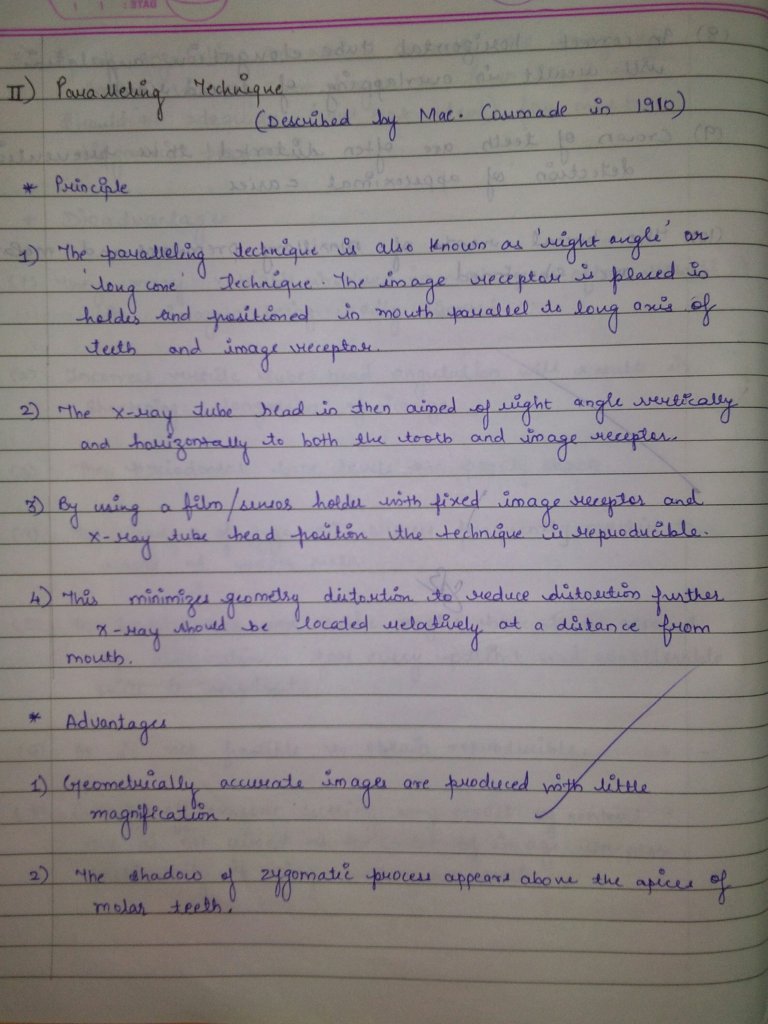 II) Paralleling Technique
(Described by Mac. Cormade in 1910)
* Principle
1) The paralleling technique is also known as 'right angle' or
'long cone' technique. The image receptor is placed in
holder and positioned in mouth parallel to long axis of
teeth and image receptor.
2) The x-ray tube head is then aimed of right angle vertically
and horizontally to both the tooth and image receptor.
3) By using a film/sensor holder with fixed image receptor and
x-ray tube head position the technique is reproducible.
4) This minimizes geometry distortion to reduce distortion further
x-ray should be located relatively at a distance from
mouth.
* Advantages
1) Geometrically accurate images are produced with little
magnification.
2) The shadow of zygomatic process appears above the apices of
molar teeth.